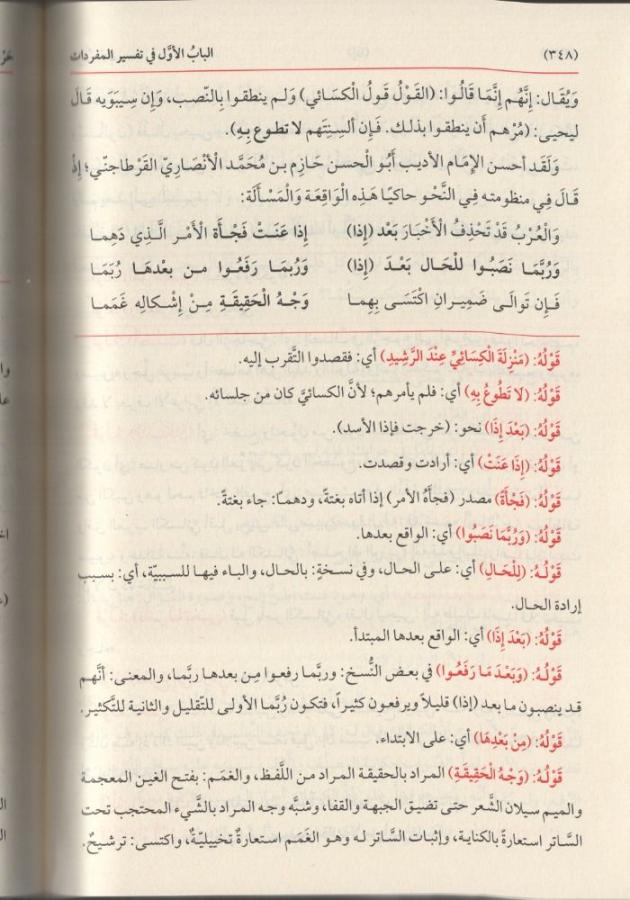 (٣٤٨) البابُ الأوَّل في تفسير المفردات
وَيُقَال: إِنَّهُم إِنَّمَا قَالُوا: (القَوْلُ قَولُ الْكسائي) وَلم ينطقوا بِالنّصب، وَإِن سِيبَوَيْه قَالَ
ليحيى: (مُرْهم أَن ينطقوا بذلك. فَإِن أَلسِنتَهم لا تطوع بِهِ).
وَلَقَد أحسن الإِمَام الأديب أَبُو الْحسن حَازِم بن مُحَمَّد الْأَنْصَارِيّ القَرْطاجني؛ إِذْ
قَالَ فِي منظومته فِي النَّحْو حاكيًا هَذِه الْوَاقِعَة وَالْمَسْأَلَة:
وَالْعُرْبُ قَدْ تَحْذِفُ الْأَخْبَارَ بَعْد (إذا) إِذا عَنَتْ فَجْأَة الْأَمْرِ الَّذِي دَهما
وَرُبَّمَا نَصَبُوا لِلْحَال بَعْدَ (إذا) وَرُبمَا رَفَعُوا من بعدهَا رُبَمَا
فَإِن تَوالَى ضَمِيرانِ اكْتَسَى بِهِما وَجْهُ الْحَقِيقَةِ مِنْ إشْكالِه غَمَما
قَوْلُهُ: (مَنْزِلَةَ الْكِسَائِيِّ عِنْدَ الرَّشِيدِ) أي: فقصدوا التَّقرب إليه.
قَوْلُهُ: (لَا تَطُوعُ بِهِ) أي: فلم يأمرهم؛ لأنَّ الكسائيَّ كان من جلسائه.
قَوْلُهُ: (بَعْدَ إِذَا) نحو: (خرجت فإذا الأسد).
قَوْلُهُ: (إِذَا عَنَتْ) أي: أرادت وقصدت.
قَوْلُهُ: (فَجْأَةَ) مصدر (فجأهُ الأمر) إذا أتاه بغتةً، ودهما: جاء بغتةً.
قَوْلُهُ: (وَرُبَّمَا نَصَبُوا) أي: الواقع بعدها.
قَوْلُهُ: (لِلْحَالِ) أي: على الحال، وفي نسخةٍ: بالحال، والباء فيها للسببيّة، أي: بسبب
إرادة الحال.
قَوْلُهُ: (بَعْدَ إِذَا) أي: الواقع بعدها المبتدأ.
قَوْلُهُ: (وَبَعْدَ مَا رَفَعُوا) في بعض النُّسخ: وربَّما رفعوا مِن بعدها ربَّما، والمعنى: أنَّهم
قد ينصبون ما بعد (إذا) قليلاً ويرفعون كثيراً، فتكون رُبَّما الأولى للتَّقليل والثانية للتَّكثير.
قَوْلُهُ: (مِنْ بَعْدِهَا) أي: على الابتداء.
قَوْلُهُ: (وَجْهُ الْحَقِيقَةِ) المراد بالحقيقة المراد من اللَّفظ، والغَمَم: بفتح الغين المعجمة
والميم سيلان الشَّعر حتى تضيق الجبهة والقفا، وشبَّه وجه المراد بالشَّيء المحتجب تحت
السَّاتر استعارةً بالكناية، وإثبات السَّاتر له وهو الغَمَم استعارةٌ تخييليّةٌ، واكتسى: ترشيحٌ.